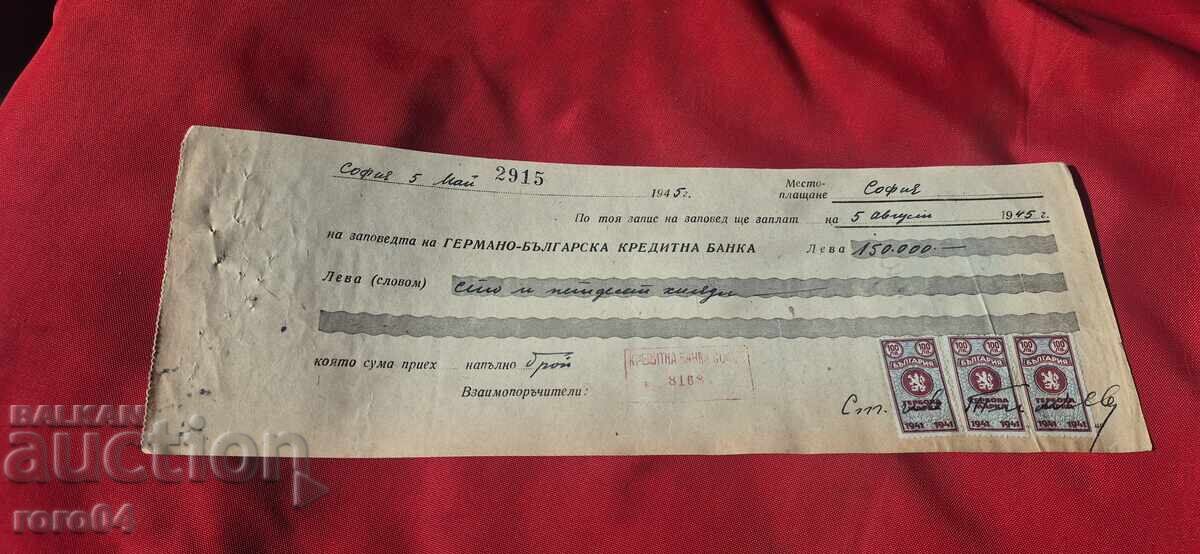 София 5 Май 2915 1945 г. Место-
плащане София
По тоя запис на заповед ще заплат на 5 август 1945 г.
на заповедта на ГЕРМАНО-БЪЛГАРСКА КРЕДИТНА БАНКА Лева 150.000.—
Лева (словом) сто и петдесет хиляди
която сума приех напълно брой
Взаимопоръчители:
КРЕДИТНА БАНКА
8168
100 ЛВ. 100 БЪЛГАРИЯ ГЕРБОВА МАРКА 1941 1941
100 ЛВ. 100 БЪЛГАРИЯ ГЕРБОВА МАРКА 1941 1941
100 ЛВ. 100 БЪЛГАРИЯ ГЕРБОВА МАРКА 1941 1941
Ст.
BALKAN
auction
roro04